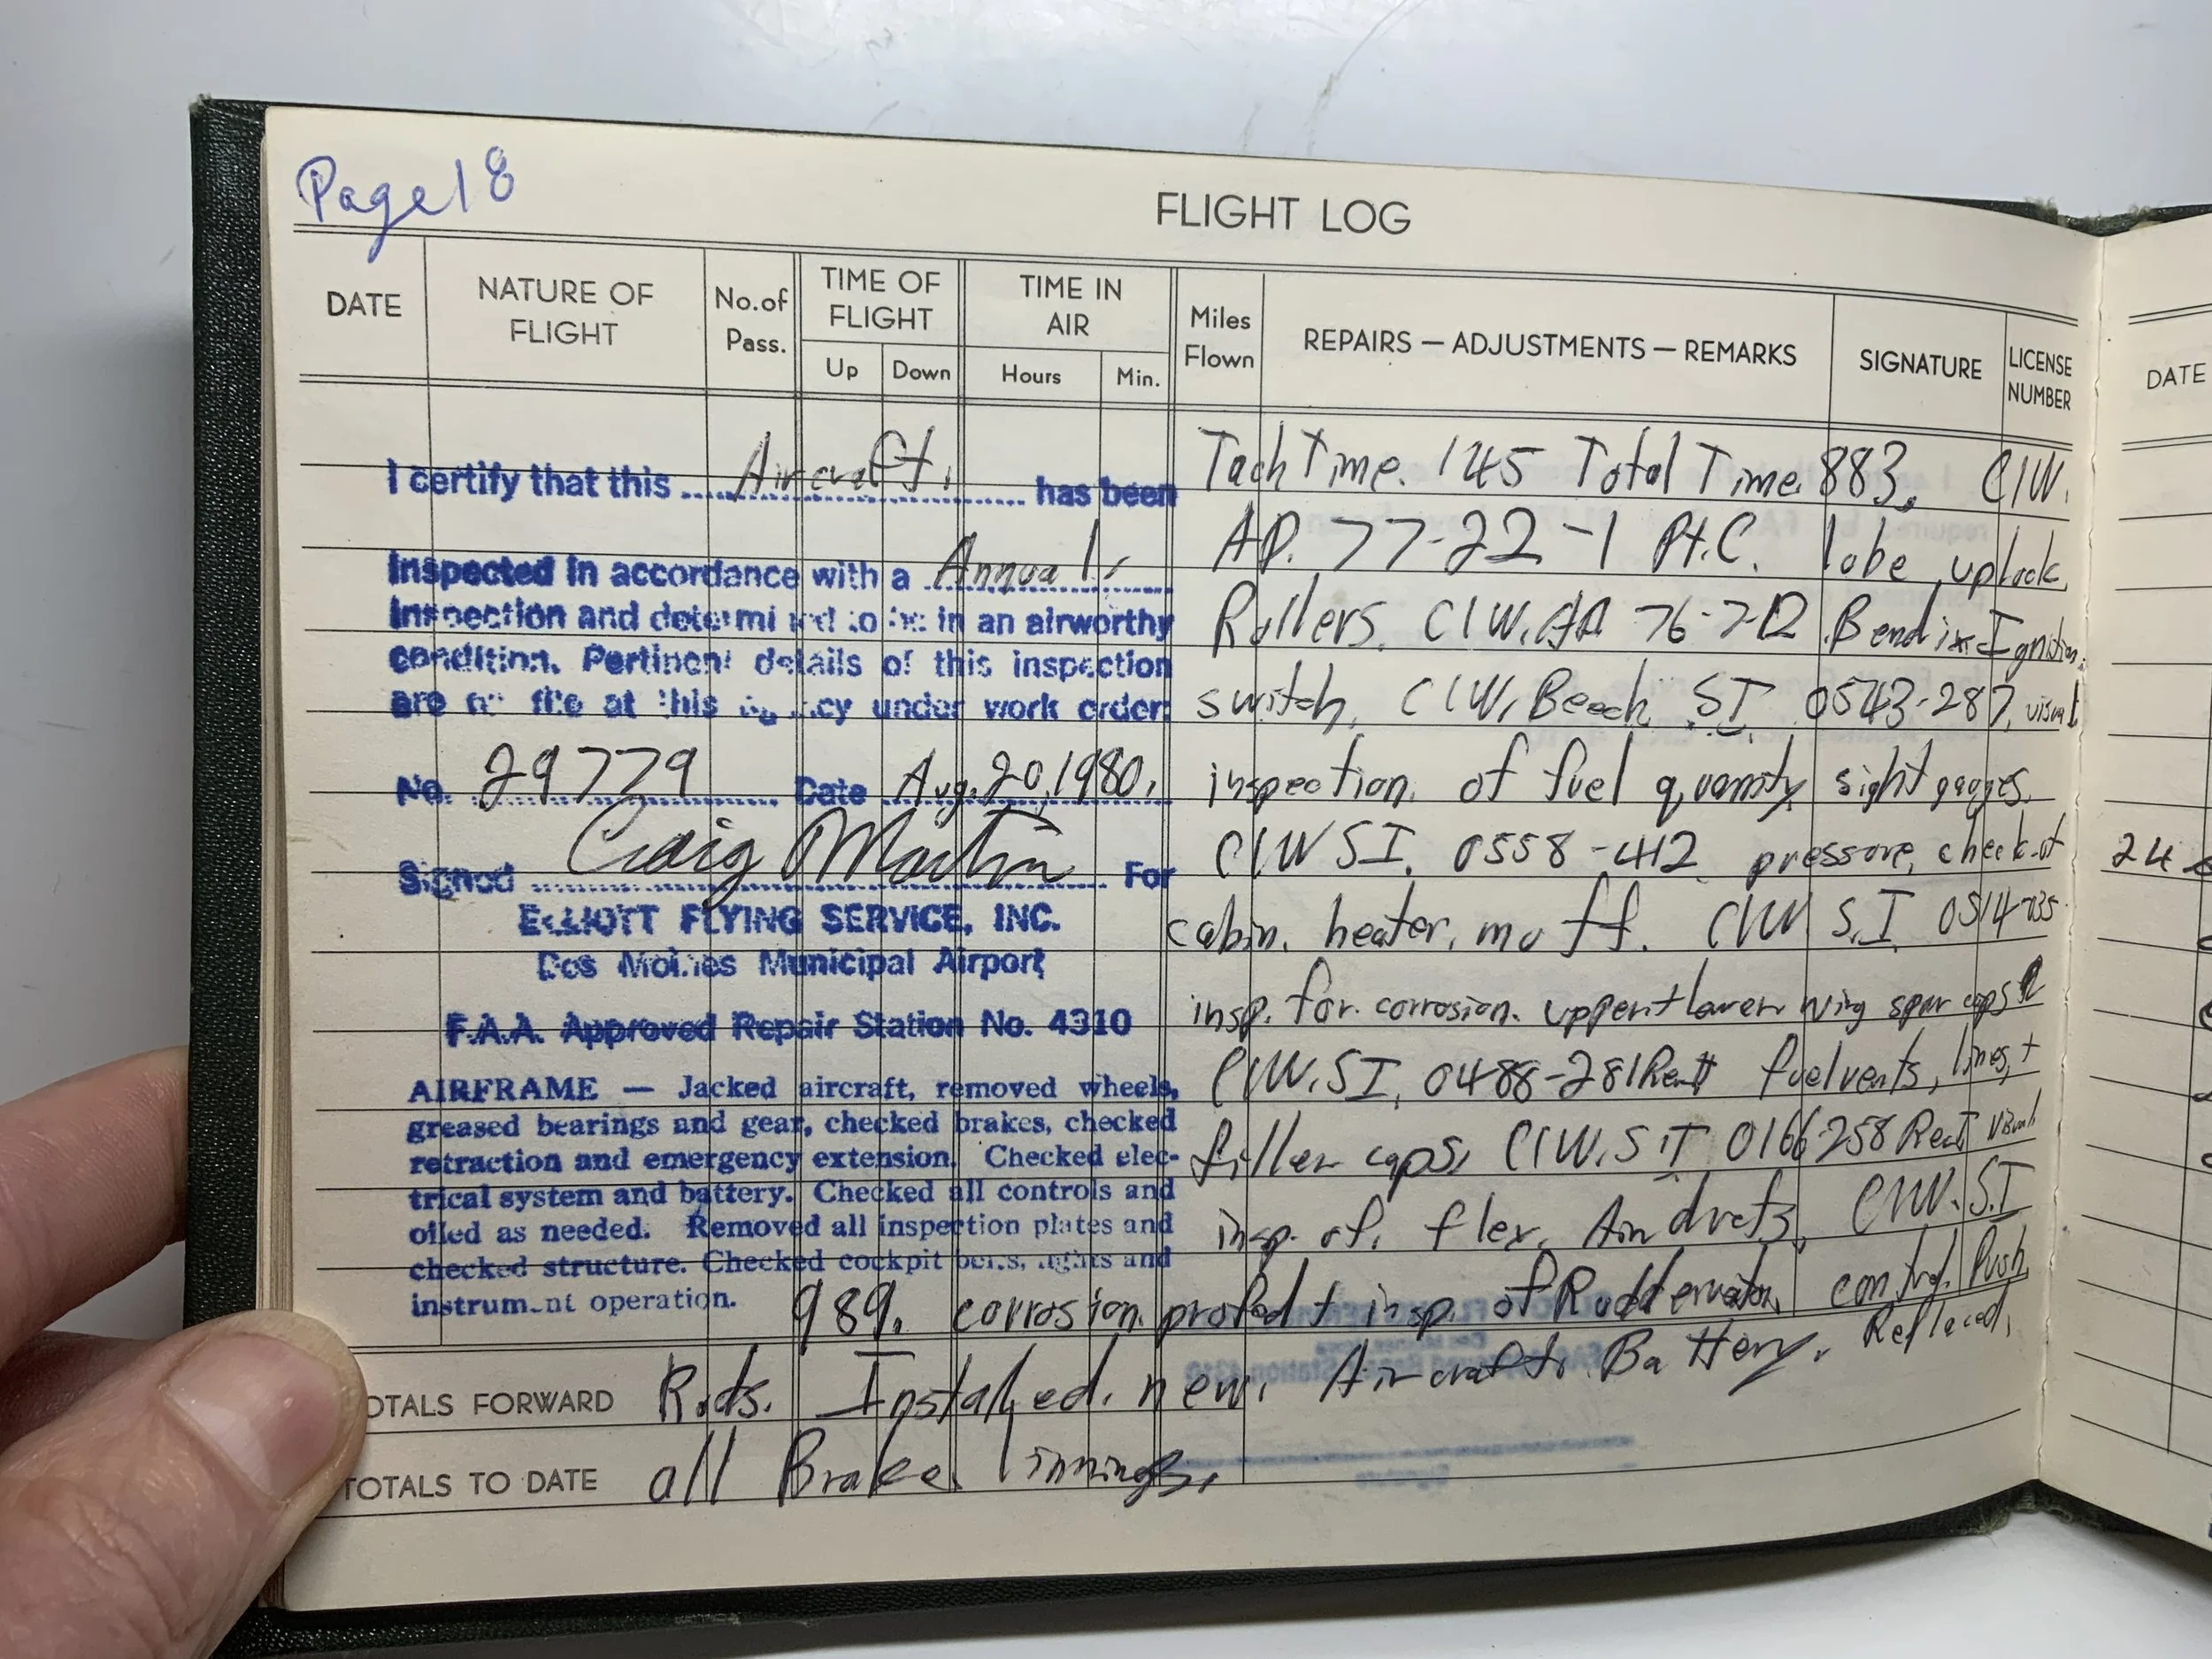 Page 18
FLIGHT LOG
DATE
NATURE OF FLIGHT
No. of Pass.
TIME OF FLIGHT
Up
Down
TIME IN AIR
Hours
Min.
Miles Flown
REPAIRS — ADJUSTMENTS — REMARKS
SIGNATURE
LICENSE NUMBER
DATE
I certify that this Aircraft. has been
Inspected in accordance with a Annual
Inspection and determined to be in an airworthy
condition. Pertinent details of this inspection
are on file at this agency under work order:
No. 29779 Date Aug. 20, 1980.
Signed Craig Martin For
ELLIOTT FLYING SERVICE, INC.
Des Moines Municipal Airport
F.A.A. Approved Repair Station No. 4310
AIRFRAME — Jacked aircraft, removed wheels,
greased bearings and gear, checked brakes, checked
retraction and emergency extension. Checked elec-
trical system and battery. Checked all controls and
oiled as needed. Removed all inspection plates and
checked structure. Checked cockpit lights and
instrument operation.
Tach Time. 145 Total Time. 883. C/W.
AD. 77-22-1 Pt. C. lobe uplock
Rollers. C/W. AD 76-7-12 Bendix Ignition
switch, C/W. Beech SI 0543-287, visual
inspection of fuel quantity sight gages.
C/W SI. 0558-412 pressure check of
cabin. heater. muff. C/W S.I 0514-035
insp. for corrosion. upper + lower wing spar caps
C/W. SI. 0488-281 fuel vents, lines, +
filler caps, C/W. SI 0166 258 visual
insp. of. flex. Air ducts, C/W. S.I
989. corrosion. protect + insp. of Ruddervator control Push
Rods. Installed. new. Aircraft. Battery. Replaced.
all Brake linnings.
TOTALS FORWARD
TOTALS TO DATE
24